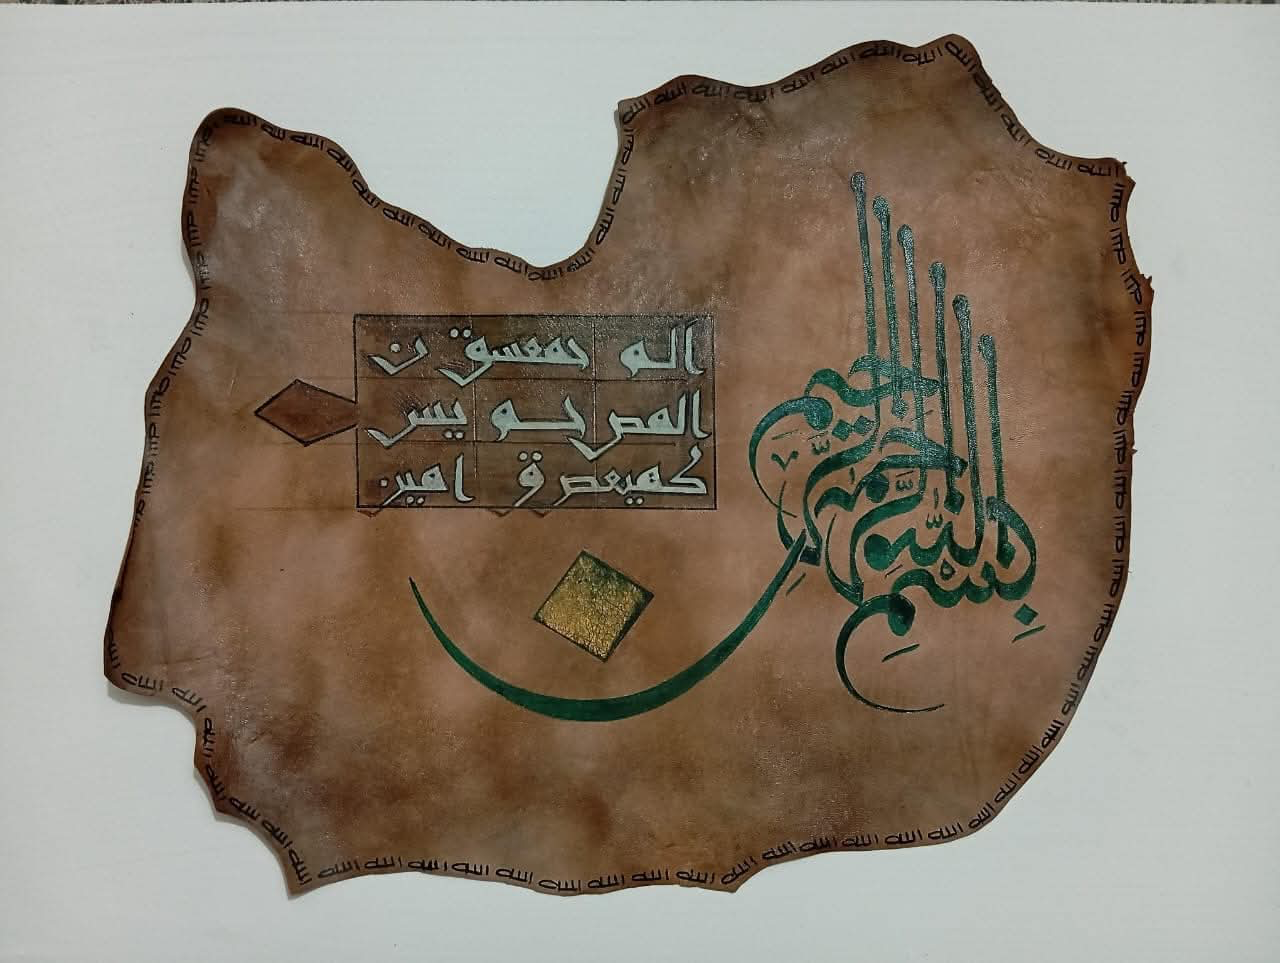 بِسْمِ اللَّهِ الرَّحْمَنِ الرَّحِيمِ
الم حمعسق ن
المص حم يس
كهيعص ق امين
الله الله الله الله الله الله الله الله الله الله